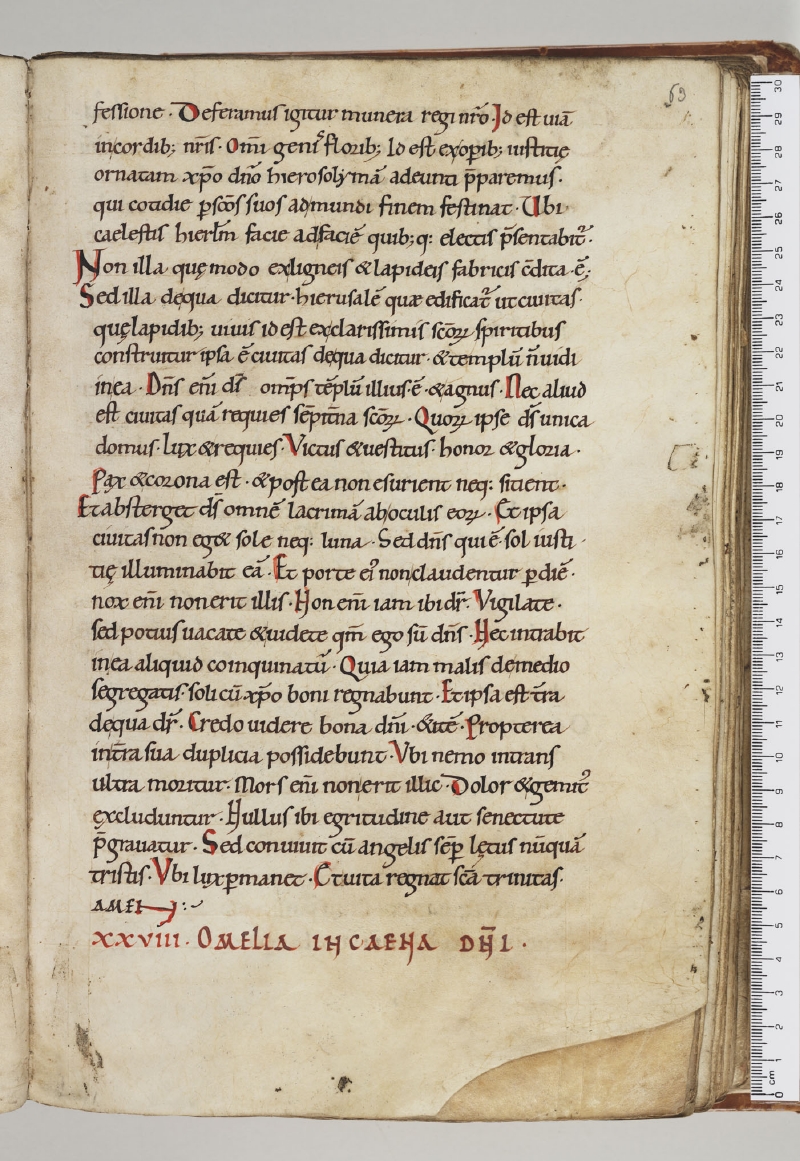 63
fessione · Deferamus igitur munera regi nr̄o · Id est uiā
incordib; nr̄is · Om̄i geni᷒ florib; Id est exop̄ib; iustitię
ornatam xp̄o dn̄o hierosolymā adeunti p̄paremus ·
qui cotidie ꝑ sc̄os suos admundi finem festinat · Ubi
caelestis hierlm̄ facie adfaciē quib;q: electis p̄sentabit᷑ ·
Non illa quę modo exligneis & lapideis fabricis c̄dita · ē;
Sed illa dequa dicitur · hierusalē quæ edificat᷑ utciuitas ·
quęlapidib; uiuis id est exclarissimis sc̄oꝝ spiritibus
construitur ipsa ē ciuitas dequa dicitur · & templū n̄ uidi
inea · Dn̄s eni̅ ds̄ omp̄s tēplū illius · ē · & agnus · Nec aliud
est ciuitas quā requies sēpit̄na sc̄oꝝ · Quoꝝ ipse ds̄ unica
domus · lux & requies · Victus & uestitus · honor & gloria ·
Pax & corona est · & post ea non esurient neq: sitient ·
Et absterget ds̄ omnē lacrimā ab oculis eoꝝ · Et ipsa
ciuitas non eg& sole neq: luna · Sed dn̄s qui ē · sol iusti
tię illuminabit eā · Et porte ei᷒ non claudentur ꝑ diē ·
nox eni̅ non erit illis · Non eni̅ iam ibi dr̄ · Vigilate ·
sed potius uacate & uidete qm̄ ego sū dn̄s · Nec intrabit
inea aliquid coinquinatū · Quia iam malis demedio
segregatis · soli cū xp̄o boni regnabunt · Et ipsa est t̄ra
dequa dr̄ · Credo uidere bona dn̄i · & itē · Propterea
int̄ra sua duplicia possidebunt · Vbi nemo intrans
ultra moritur · Mors eni̅ non erit illic · Dolor & gemit᷒
excluduntur · Nullus ibi egritudine aut senectute
p̄grauatur · Sed conuiuit cū angelis sēꝑ lętus nūquā
tristis · Vbi lux ꝑmanet · Et uita regnat sc̄a trinitas ·
AMEN
XXVIII · OMELIA IN CAENA DN̄I ·